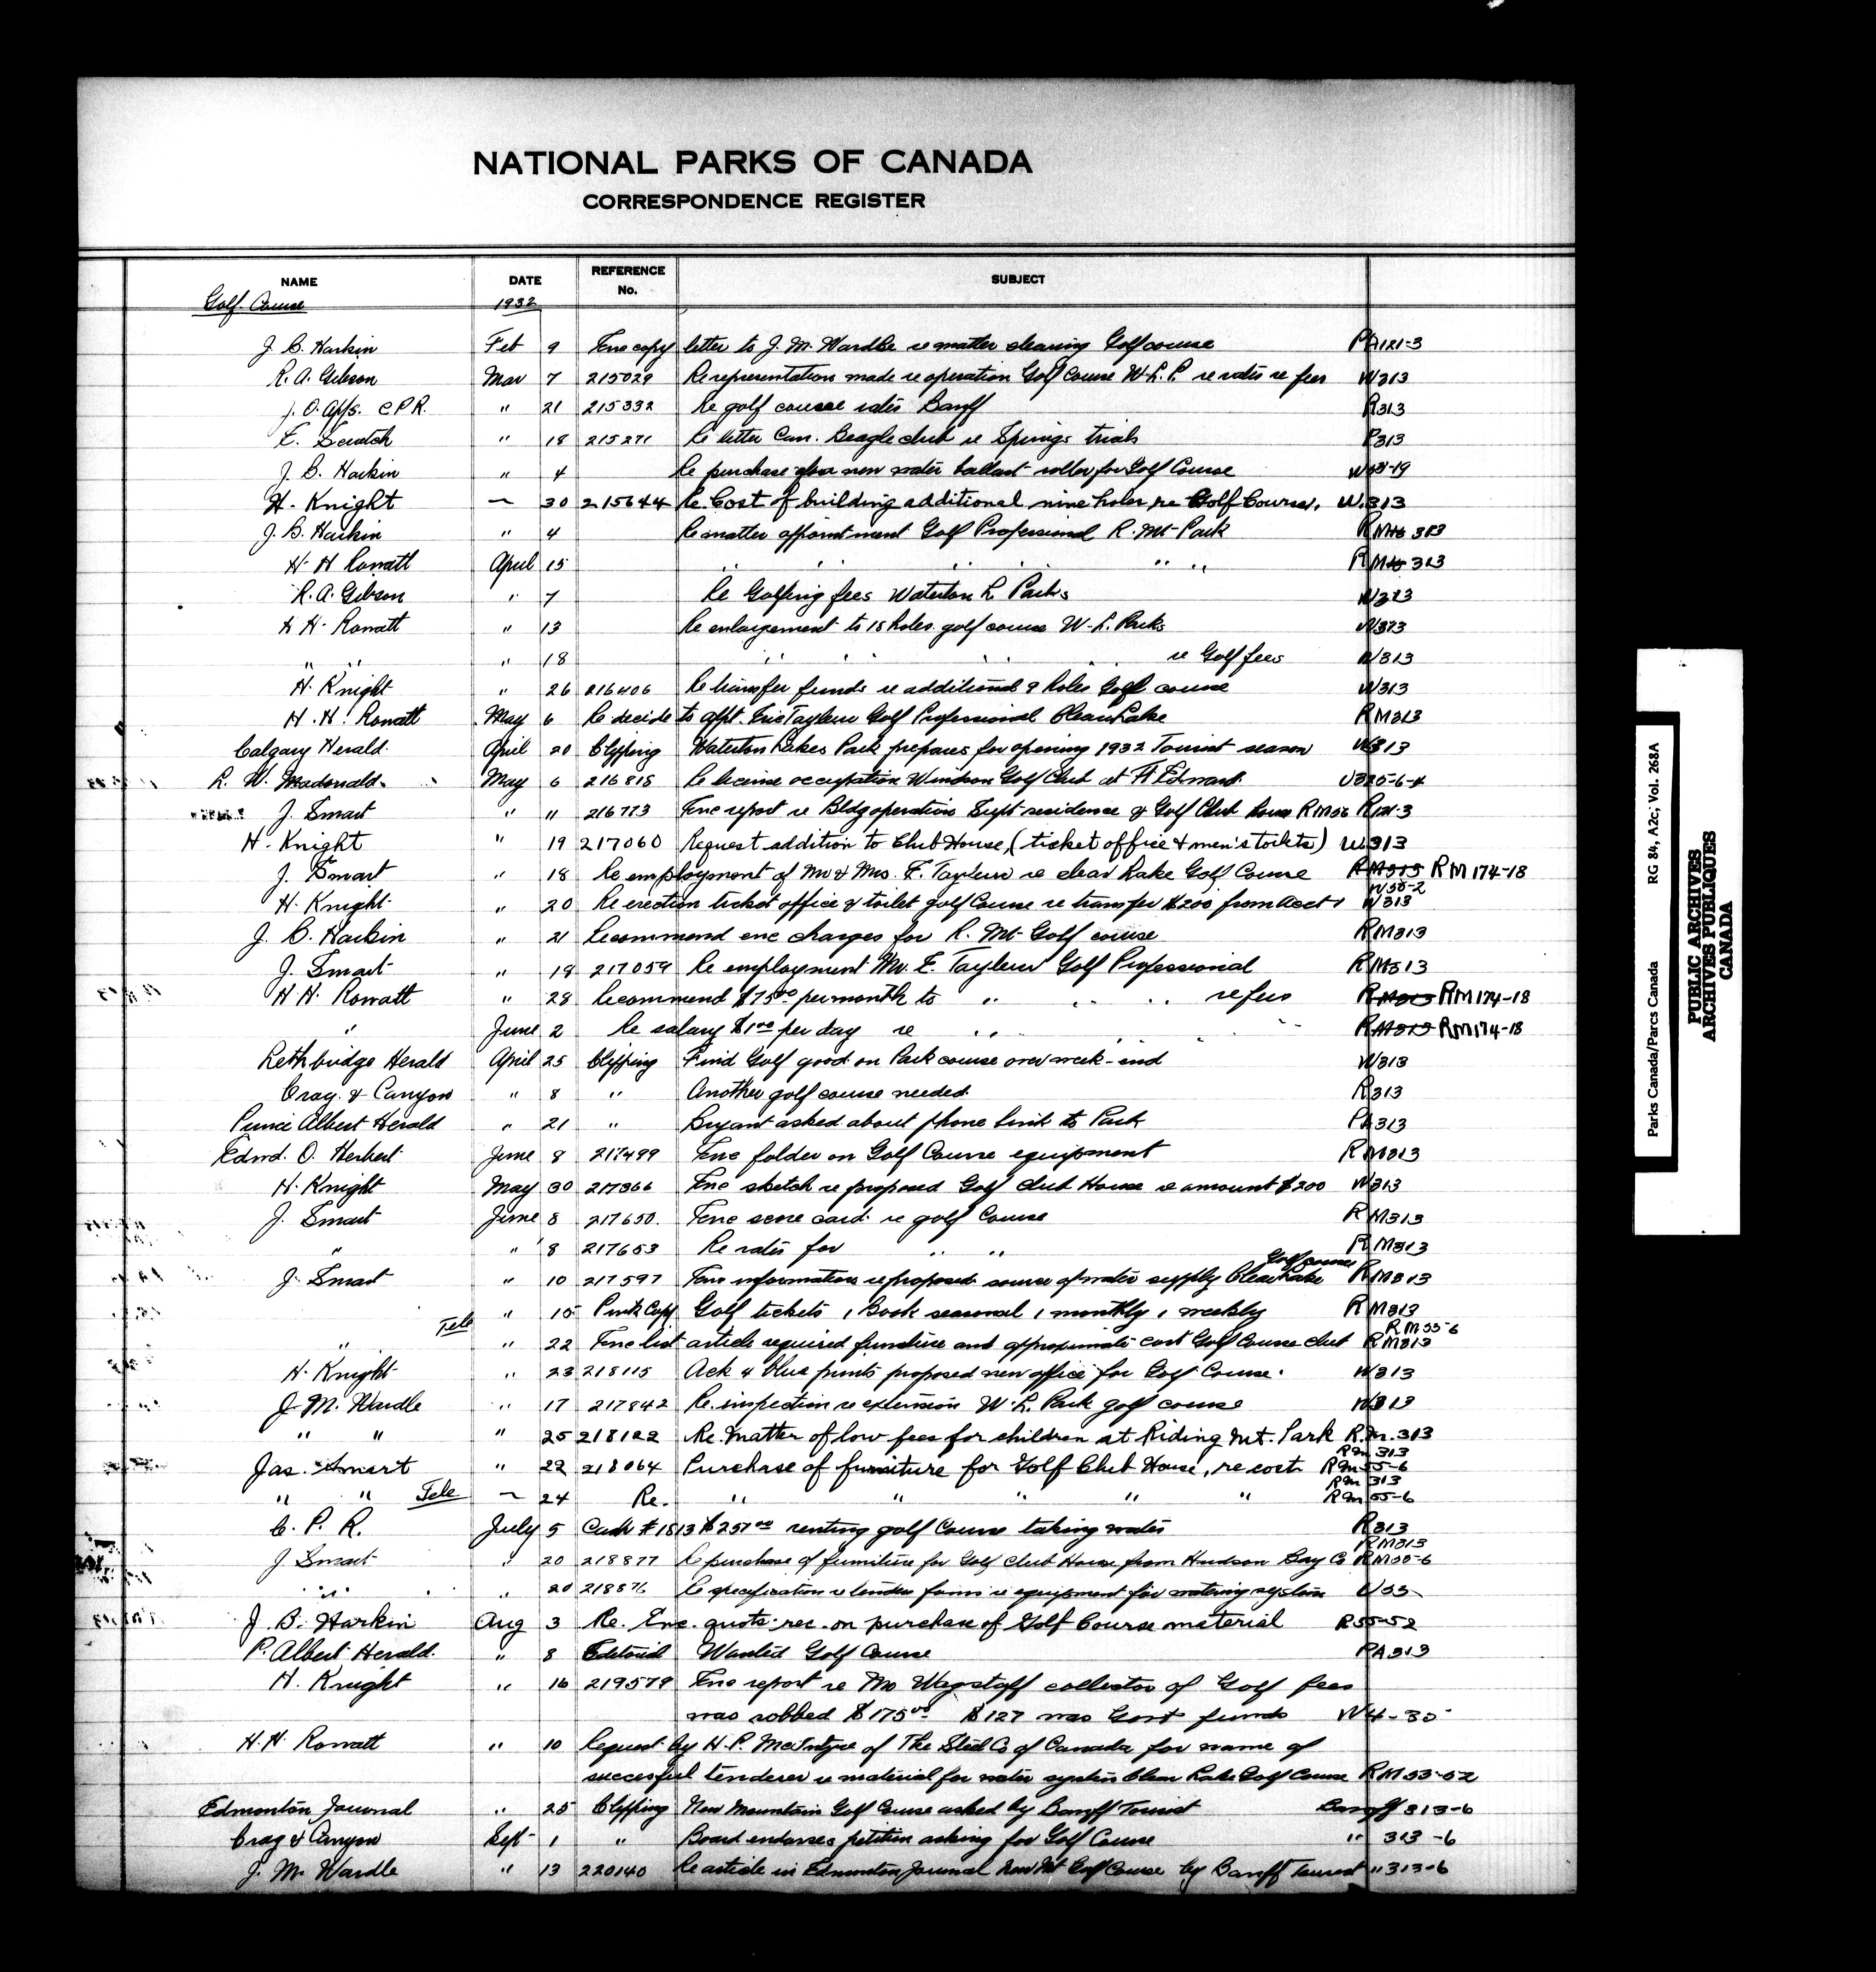 NATIONAL PARKS OF CANADA
CORRESPONDENCE REGISTER
NAME DATE REFERENCE No. SUBJECT
Golf Course 1932
J. B. Harkin Feb 9 Enc copy letter to J. M. Wardle re matter clearing Golf course PA121-3
R. A. Gibson Mar 7 215029 Re representation made re operation Golf Course W.L.P. re rates re fees W313
J. O. Apps. C.P.R. " 21 215332 Re golf course rates Banff R313
E. Scratch " 18 215271 Re letter Can. Beagle club re Springs trials R313
J. B. Harkin " 4 Re purchase of a new water ballast roller for Golf Course
H. Knight 30 215644 Re Cost of building additional nine holes re Golf Course. W.313
J. B. Harkin " 4 Re matter appointment Golf Professional R. Mt. Park RM 313
H. H Rowatt April 15 " " " " " " RM 313
R. A. Gibson " 7 Re Golfing fees Waterton L Parks W313
H H. Rowatt " 13 Re enlargement to 18 holes golf course W-L. Parks W313
" " " 18 " " " " re Golf fees W313
H. Knight " 26 216406 Re transfer funds re additional 9 holes Golf course W313
H. H. Rowatt May 6 Re decide to appt. Eric Taylour Golf Professional Clear Lake RM313
Calgary Herald. April 20 Clipping Waterton Lakes Park prepares for opening 1932 Tourist season W313
L. W. Macdonald. May 6 216818 Re license occupation Windsor Golf Club at Ft Edward.
J. Smart " 11 216773 Enc report re Bldg operations Supt residence & Golf Club house RM56 R121-3
H. Knight " 19 217060 Request addition to Club House, (ticket office & men's toilets) W.313
J. Smart " 18 Re employment of Mr & Mrs. E. Taylour re clear Lake Golf Course RM313 RM174-18
W55-2
H. Knight " 20 Re erection ticket office & toilet golf Course re transfer $200 from acct W313
J. B. Harkin " 21 Recommend enc charges for R. Mt. Golf course RM313
J. Smart " 18 217059 Re employment Mr. E. Taylour Golf Professional RM313
H H. Rowatt " 28 Recommend $75.00 per month to " " " re fees RM313 RM174-18
" June 2 Re salary $1.00 per day re " " " RM313 RM174-18
Lethbridge Herald April 25 Clipping Find Golf good on Park course over week-end W313
Crag. & Canyon " 8 " Another golf course needed. R313
Prince Albert Herald " 21 " Bryant asked about phone link to Park PA313
Edwd. O. Herbert June 8 217499 Enc folder on Golf Course equipment RM313
H. Knight May 30 217366 Enc sketch re proposed Golf Club House re amount $200 W313
J. Smart June 8 217650. Enc score card re golf Course RM313
" " 8 217653 Re rates for " " RM313
Golf course
J. Smart " 10 217597 Enc information re proposed source of water supply Clear Lake RM313
" 15 Pink Copy Golf tickets 1 Book seasonal 1 monthly 1 weekly RM313
Tele RM55-6
" " 22 Enc list article required furniture and approximate cost Golf Course club RM313
H. Knight " 23 218115 Ack 4 blue prints proposed new office for Golf Course. W313
J. M. Wardle " 17 217842 Re. inspection re extension W.L. Park golf course W313
" " " 25 218122 Re. Matter of low fees for children at Riding Mt. Park R.M.313
RM 313
Jas. Smart " 22 218064 Purchase of furniture for Golf Club House, re cost. RM55-6
RM 313
" " Tele 24 Re. " " " " " RM 55-6
C. P. R. July 5 Cash #1813 $251.00 renting golf Course taking water R313
RM313
J. Smart " 20 218877 Re purchase of furniture for Golf Club House from Hudson Bay Co RM55-6
" " " 20 218876 Re specification re tender forms re equipment for watering system U55
J. B. Harkin Aug 3 Re. Enc. quota. rec. on purchase of Golf Course material R55-52
P. Albert Herald. " 8 Editorial Wanted Golf Course PA313
H. Knight " 16 219579 Enc report re Mr Wagstaff collector of Golf fees
was robbed $175.00 $127 was Govt funds W4-30
H. H. Rowatt " 10 Request by H. P. McIntyre of The Steel Co of Canada for name of
successful tenderer re material for water system Clear Lake Golf Course RM55-52
Edmonton Journal " 25 Clipping New Mountain Golf Course asked by Banff Tourist Banff 313-6
Crag & Canyon Sept 1 " Board endorses petition asking for Golf Course " 313-6
J. M. Wardle " 13 220140 Re article in Edmonton Journal New Mt Golf Course by Banff Tourist " 313-6
Parks Canada/Parcs Canada RG 84, A2c, Vol. 268A
PUBLIC ARCHIVES
ARCHIVES PUBLIQUES
CANADA